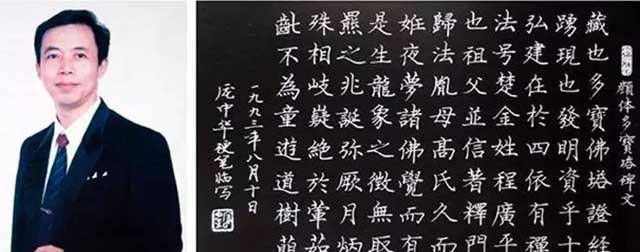 顏体多寶塔碑文
藏也多寶佛塔證經
踴現也發明資乎十
弘建在於四依有禅
法号楚金姓程廣平
也祖父並信著釋門
歸法胤母高氏久而
姙夜夢諸佛覺而有
是生龍象之徵無取
羆之兆誕弥厥月炳
殊相岐嶷絕於葷茹
齔不為童遊道樹萌
一九九三年八月十日
庞中华硬笔临写